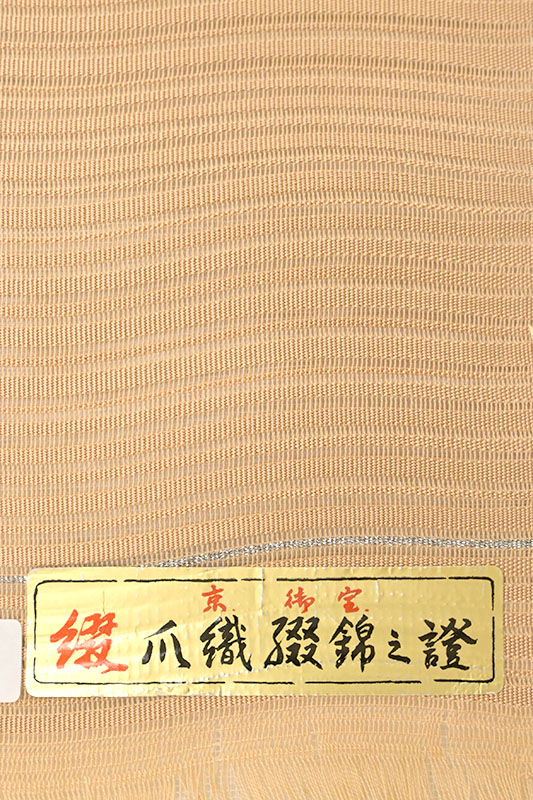 京御室
綴爪織綴錦之證